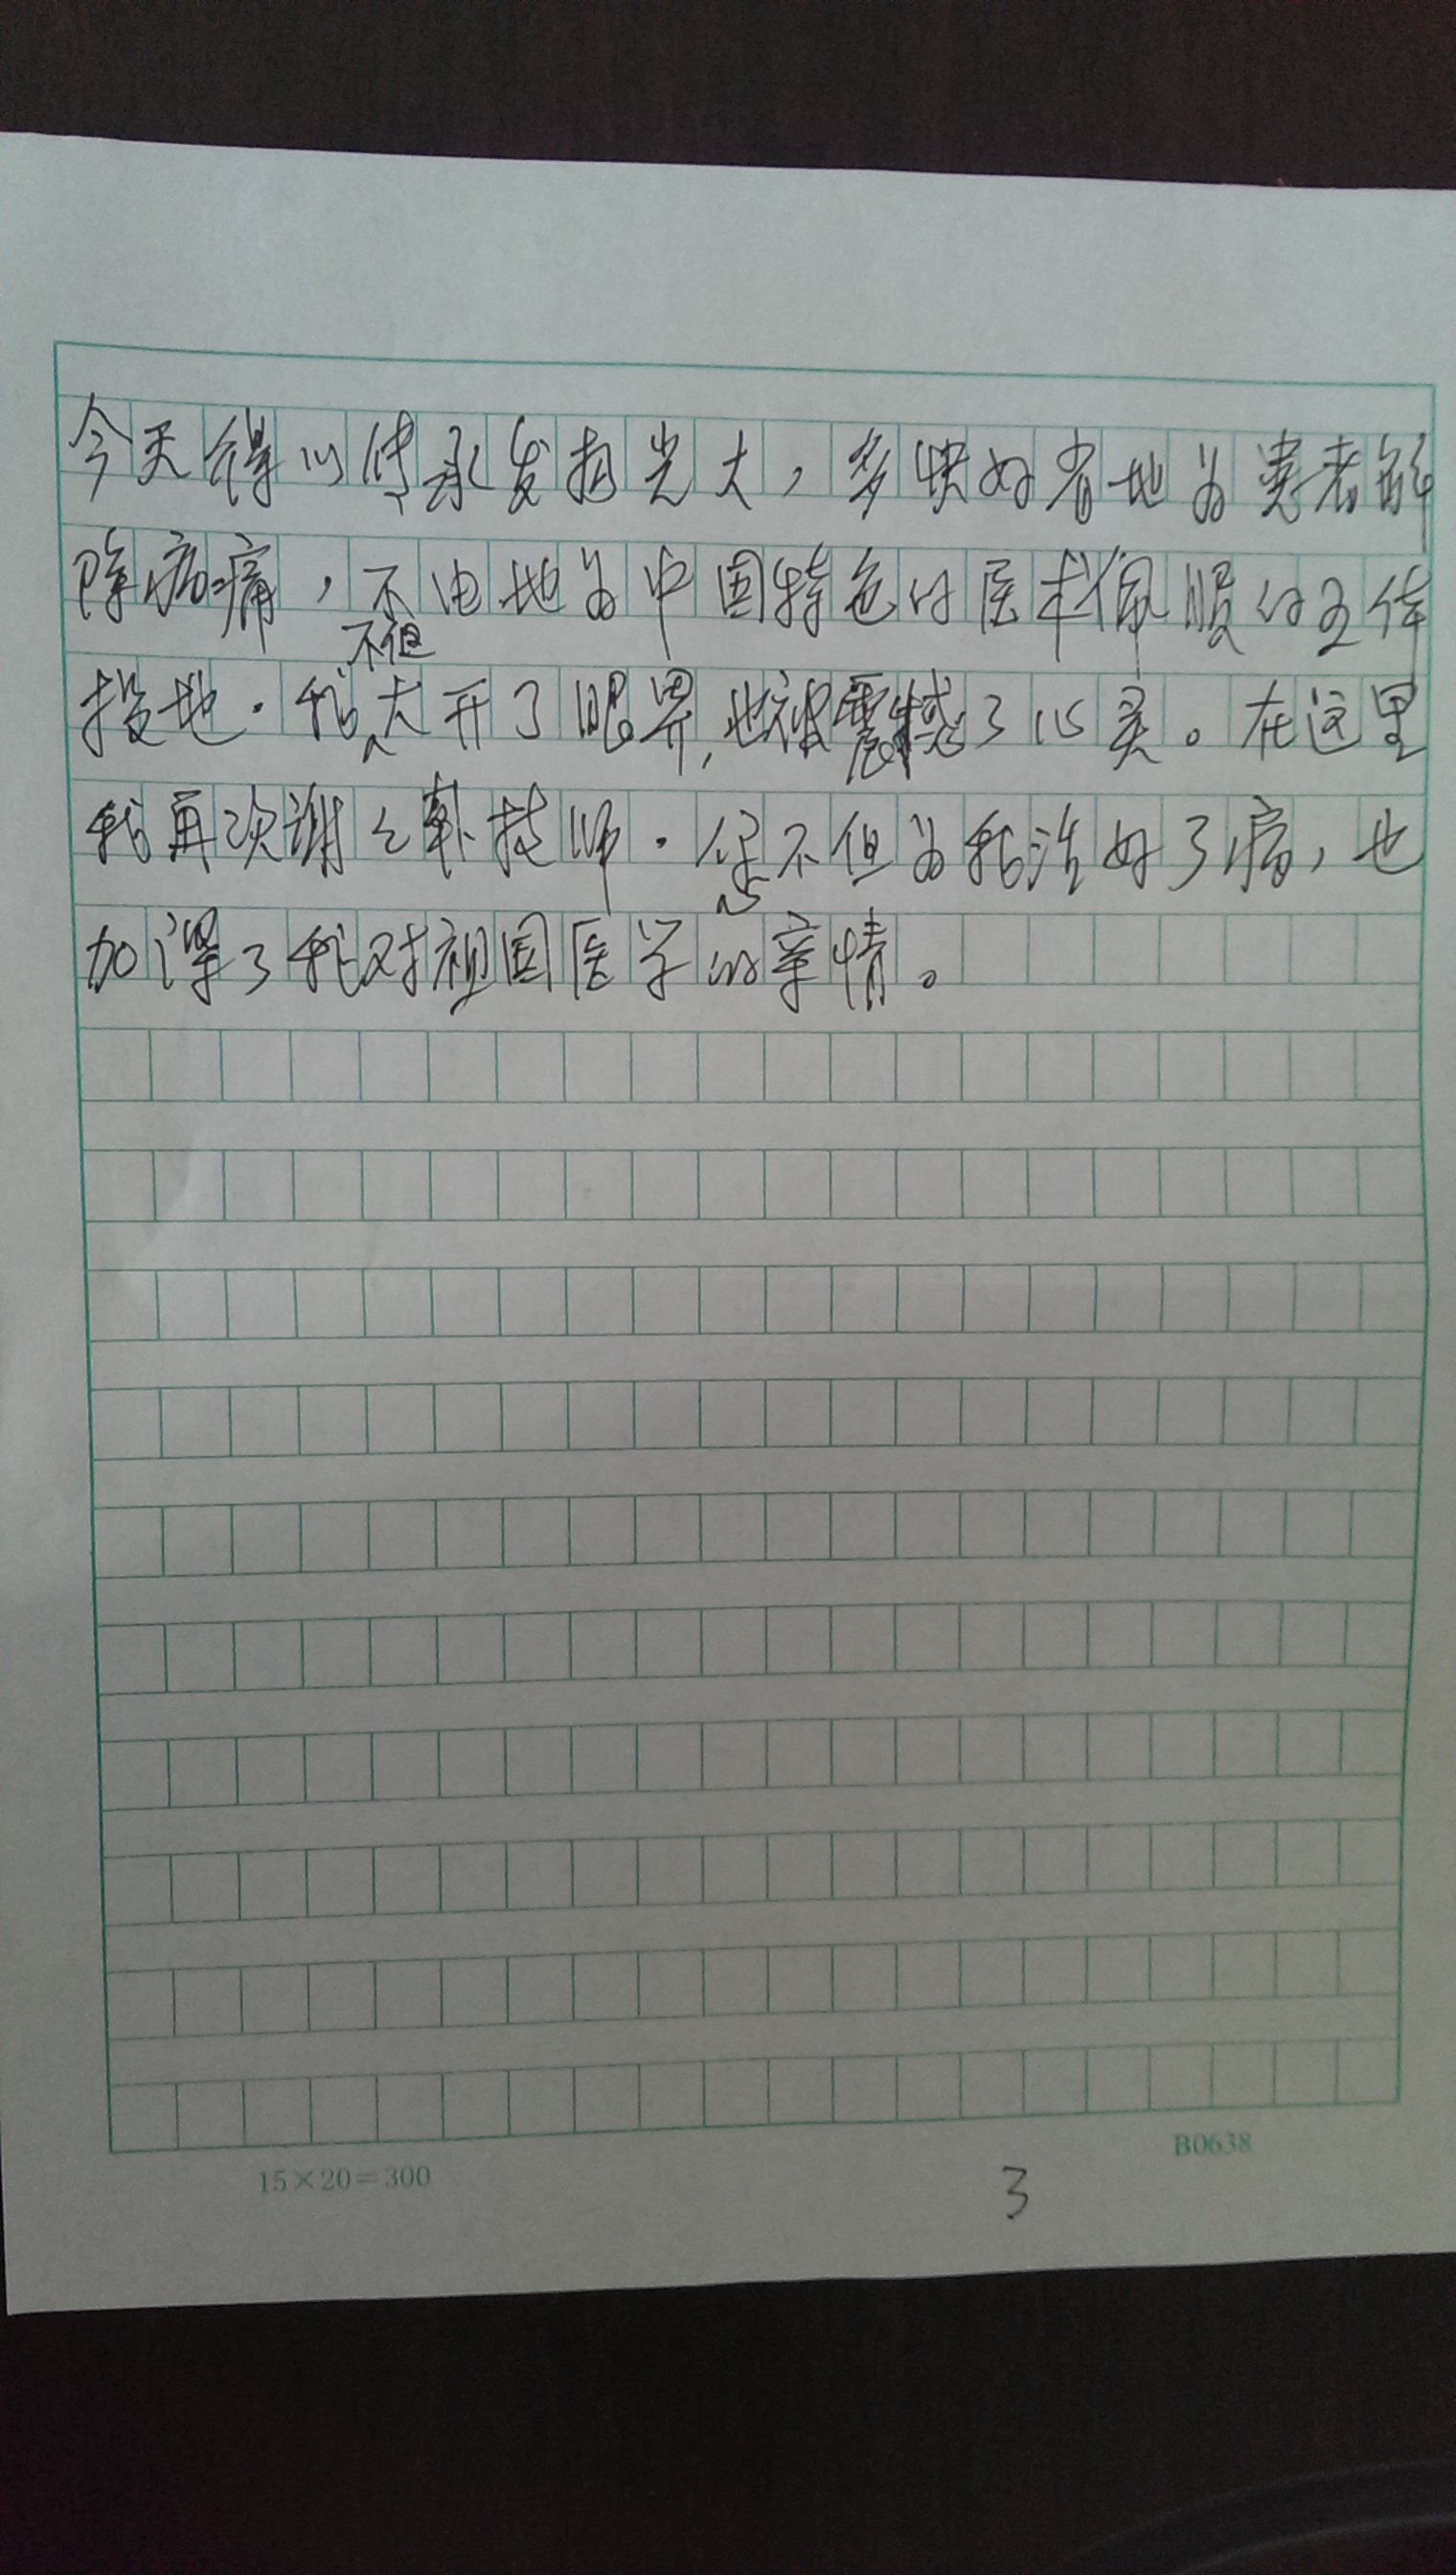 今天得以传承发扬光大，多快好省地为患者解
除病痛，不由地为中国特色的医术佩服的五体
投地．我不但大开了眼界，也被震撼了心灵。在这里
我再次谢之韩技师．您不但为我治好了病，也
加深了我对祖国医学的亲情。
15×20＝300
B0638
3